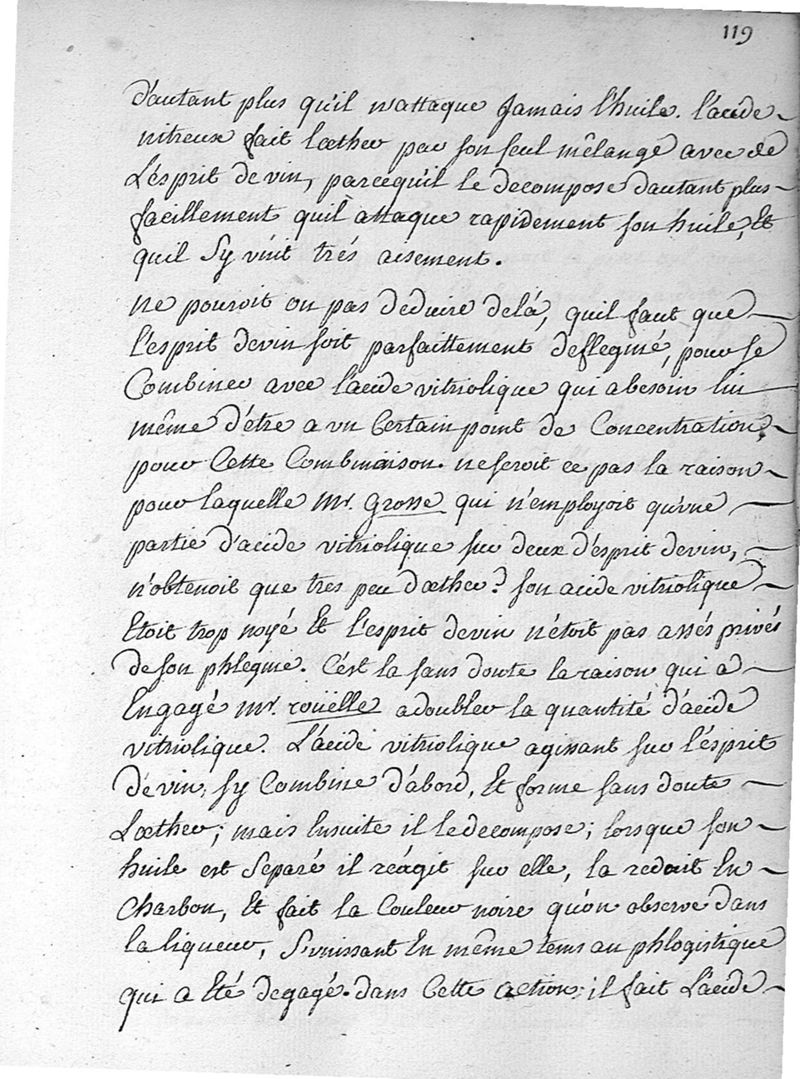 119
d'autant plus qu'il n'attaque Jamais l'huile. l'acide
nitreux fait l'œther par son seul mêlange avec de
L'ésprit de vin, parcequ'il le decompose d'autant plus
facillement quil attaque rapidement son huile, Et
quil Sy vnit trés aisement.
ne pouroit on pas deduire delà, quil faut que
l'esprit devin soit parfaittement deflegmé, pour se
Combiner avec l'acide vitriolique qui abesoin lui
même d'étre a vn Certain point de Concentration,
pour Cette Combinaison. ne seroit ce pas la raison
pour laquelle Mr. Grosse qui n'employoit qu'vne
partie d'acide vitriolique sur deux d'ésprit devin,
n'obtenoit que tres peu d'œther? son acide vitriolique
Etoit trop noyé Et l'esprit devin n'étoit pas assés privé
de son phlegme. C'ést la sans doute la raison qui a
Engagé Mr. roüelle adoubler la quantité d'acide
vitriolique. L'acide vitriolique agissant sur l'ésprit
de vin, sy Combine d'abord, Et forme sans doute
L'œther; mais Ensuite il le decompose; lorsque son
huile est Separé il réagit sur elle, la reduit En
Charbon, Et fait la Couleur noire qu'on observe dans
la liqueur, S'vnissant En même tems au phlogistique
qui a Eté degagé dans Cette action; il fait L'acide